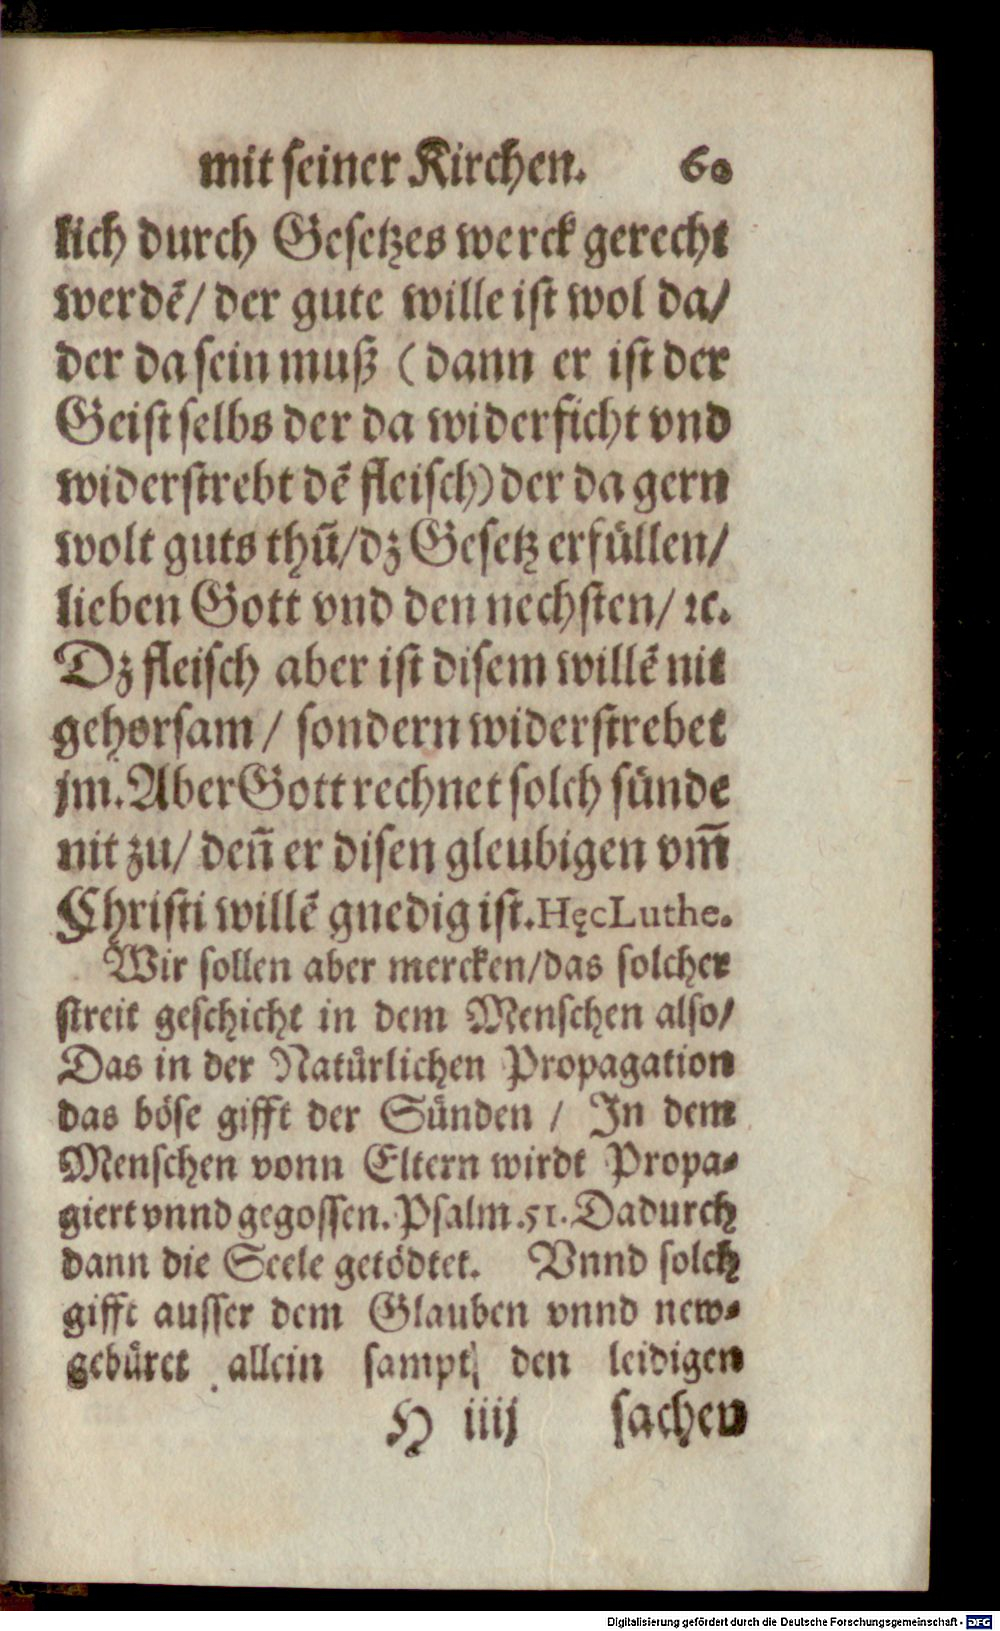 mit seiner Kirchen. 60
lich durch Gesetzes werck gerecht
werdẽ/ der gute wille ist wol da/
der da sein muß (dann er ist der
Geist selbs der da widerficht vnd
widerstrebt dẽ fleisch) der da gern
wolt guts thũ/dz Gesetz erfüllen/
lieben Gott vnd den nechsten/ ꝛc.
Dz fleisch aber ist disem willẽ nit
gehorsam / sondern widerstrebet
jm. Aber Gott rechnet solch sünde
nit zu/ deñ er disen gleubigen vm̃
Christi willẽ gnedig ist. HęcLuthe.
Wir sollen aber mercken/das solcher
streit geschicht in dem Menschen also/
Das in der Natůrlichen Propagation
das böse gifft der Sünden / In dem
Menschen vonn Eltern wirdt Propa-
giert vnnd gegossen. Psalm.51. Dadurch
dann die Seele getödtet. Vnnd solch
gifft ausser dem Glauben vnnd new-
gebüret allein sampt den leidigen
H iiij sachen
Digitalisierung gefördert durch die Deutsche Forschungsgemeinschaft - DFG